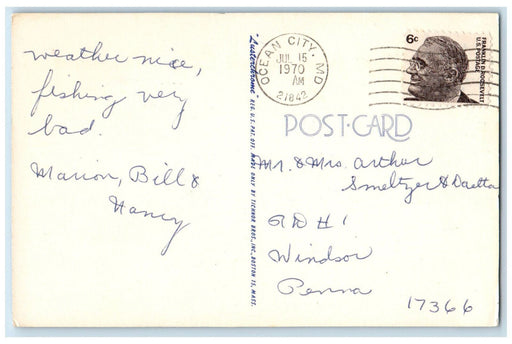 weather nice,
fishing very
bad.
Marion, Bill &
Nancy
"Lusterchrome" REG. U.S. PAT. OFF. MADE ONLY BY TICHNOR BROS., INC., BOSTON 15, MASS.
OCEAN CITY, MD
JUL 15
1970
AM
21842
6c
FRANKLIN D. ROOSEVELT
U.S. POSTAGE
POST-CARD
Mr. & Mrs. Arthur
Smeltzer &
RD # 1
Windsor
Penna
17366